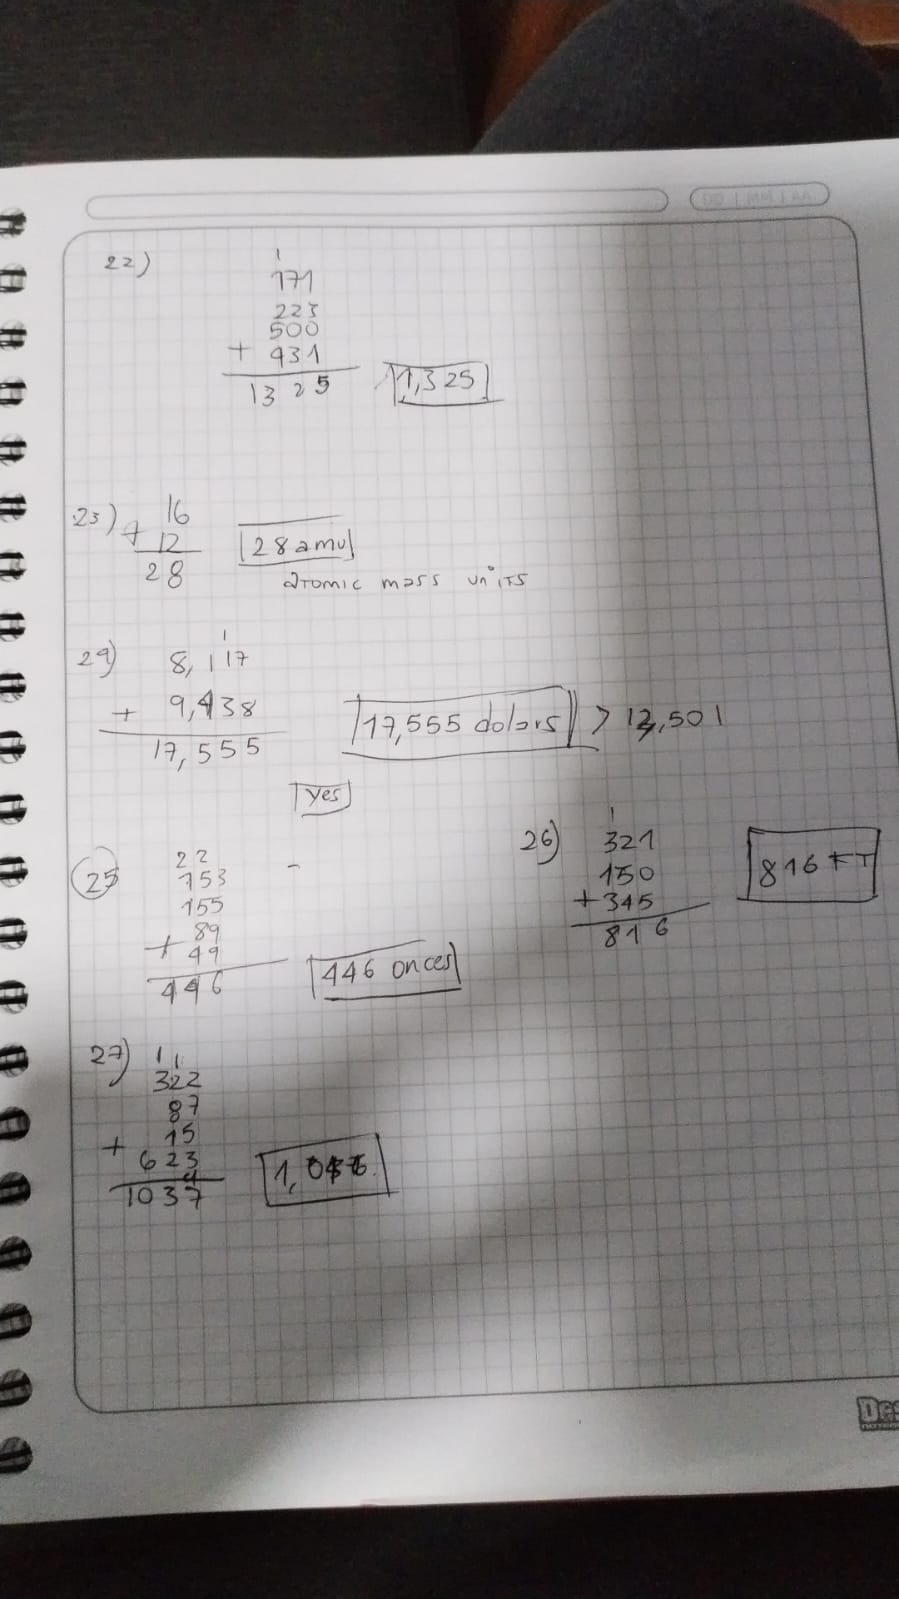 DD | MM | AA
22)
1
171
223
500
+ 431
1325 1,325
23) 16
+ 12
28
28 amu
atomic mass units
24) 1
8,117
+ 9,438
17,555
17,555 dolars > 12,501
yes
25
22
153
155
89
+ 49
446
446 onces
26) 1
321
150
+ 345
816
816 FT
27) 11
322
87
+ 15
623
1037